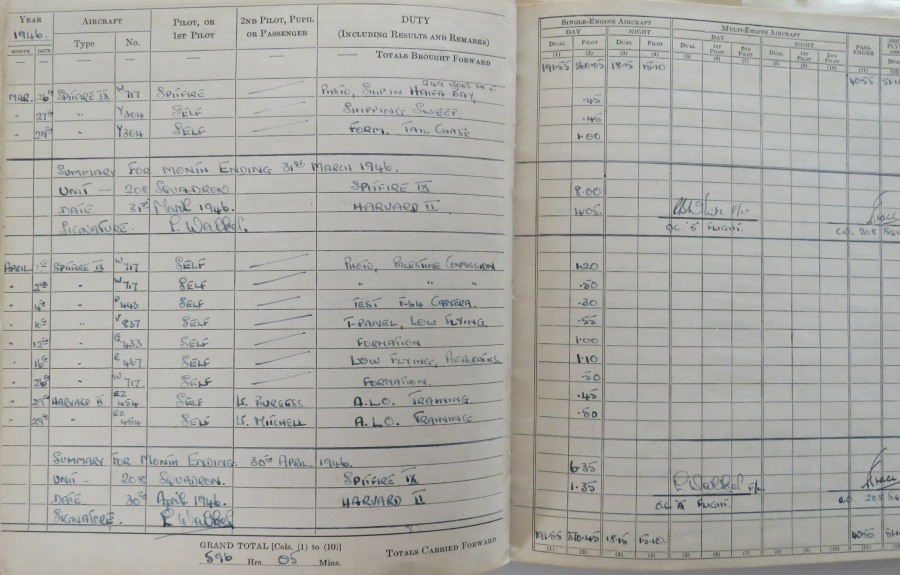 YEAR AIRCRAFT PILOT, OR 1ST PILOT 2ND PILOT, PUPIL OR PASSENGER DUTY (INCLUDING RESULTS AND REMARKS)
1946.
MONTH DATE Type No.
— — — — — — TOTALS BROUGHT FORWARD
SINGLE-ENGINE AIRCRAFT MULTI-ENGINE AIRCRAFT
DAY NIGHT DAY NIGHT
DUAL PILOT DUAL PILOT DUAL 1ST PILOT 2ND PILOT DUAL 1ST PILOT 2ND PILOT
(1) (2) (3) (4) (5) (6) (7) (8) (9) (10)
191.55 18.15 15.10 40.55
MAR. 26th SPITFIRE IX W 717 PHOTO, SHIP IN HAIFA BAY, .45
" 27th " Y 304 SELF SHIPPING SWEEP .45
" 29th " Y 304 SELF FORM. TAIL CHASE 1.00
SUMMARY FOR MONTH ENDING 31st MARCH 1946.
UNIT — 208 SQUADRON SPITFIRE IX 8.00
DATE 31st March 1946. HARVARD II.
SIGNATURE.
O.C. 'B' FLIGHT. C.O. 208
APRIL 1st SPITFIRE IX W 717 SELF PHOTO, PALESTINE 1.20
" 2nd " W 717 SELF " " " .50
" " 443 SELF TEST F-64 CAMERA. .30
" 10th " SELF T-PANEL, LOW FLYING .55
" 12th " 433 SELF FORMATION 1.00
" 16th " 467 SELF LOW FLYING, AEROBATICS 1.10
" 26th " W 717. SELF FORMATION. .50
" HARVARD II EZ 454 SELF Lt. BURGESS A.L.O. TRAINING. .45
" 29th " EZ 454 SELF Lt. MITCHELL A.L.O. TRAINING. .50
SUMMARY FOR MONTH ENDING. 30th APRIL. 1946.
UNIT - 208 SQUADRON. SPITFIRE IX 6.35
DATE. 30th April. 1946. HARVARD II 1.35
SIGNATURE.
O.C. 'A' FLIGHT. C.O. 208
GRAND TOTAL [Cols. (1) to (10)]
596 Hrs. 05 Mins.
TOTALS CARRIED FORWARD
191.55 370.45 18.15 15.10. 40.55
(1) (2) (3) (4) (5) (6) (7) (8) (9) (10) (11)